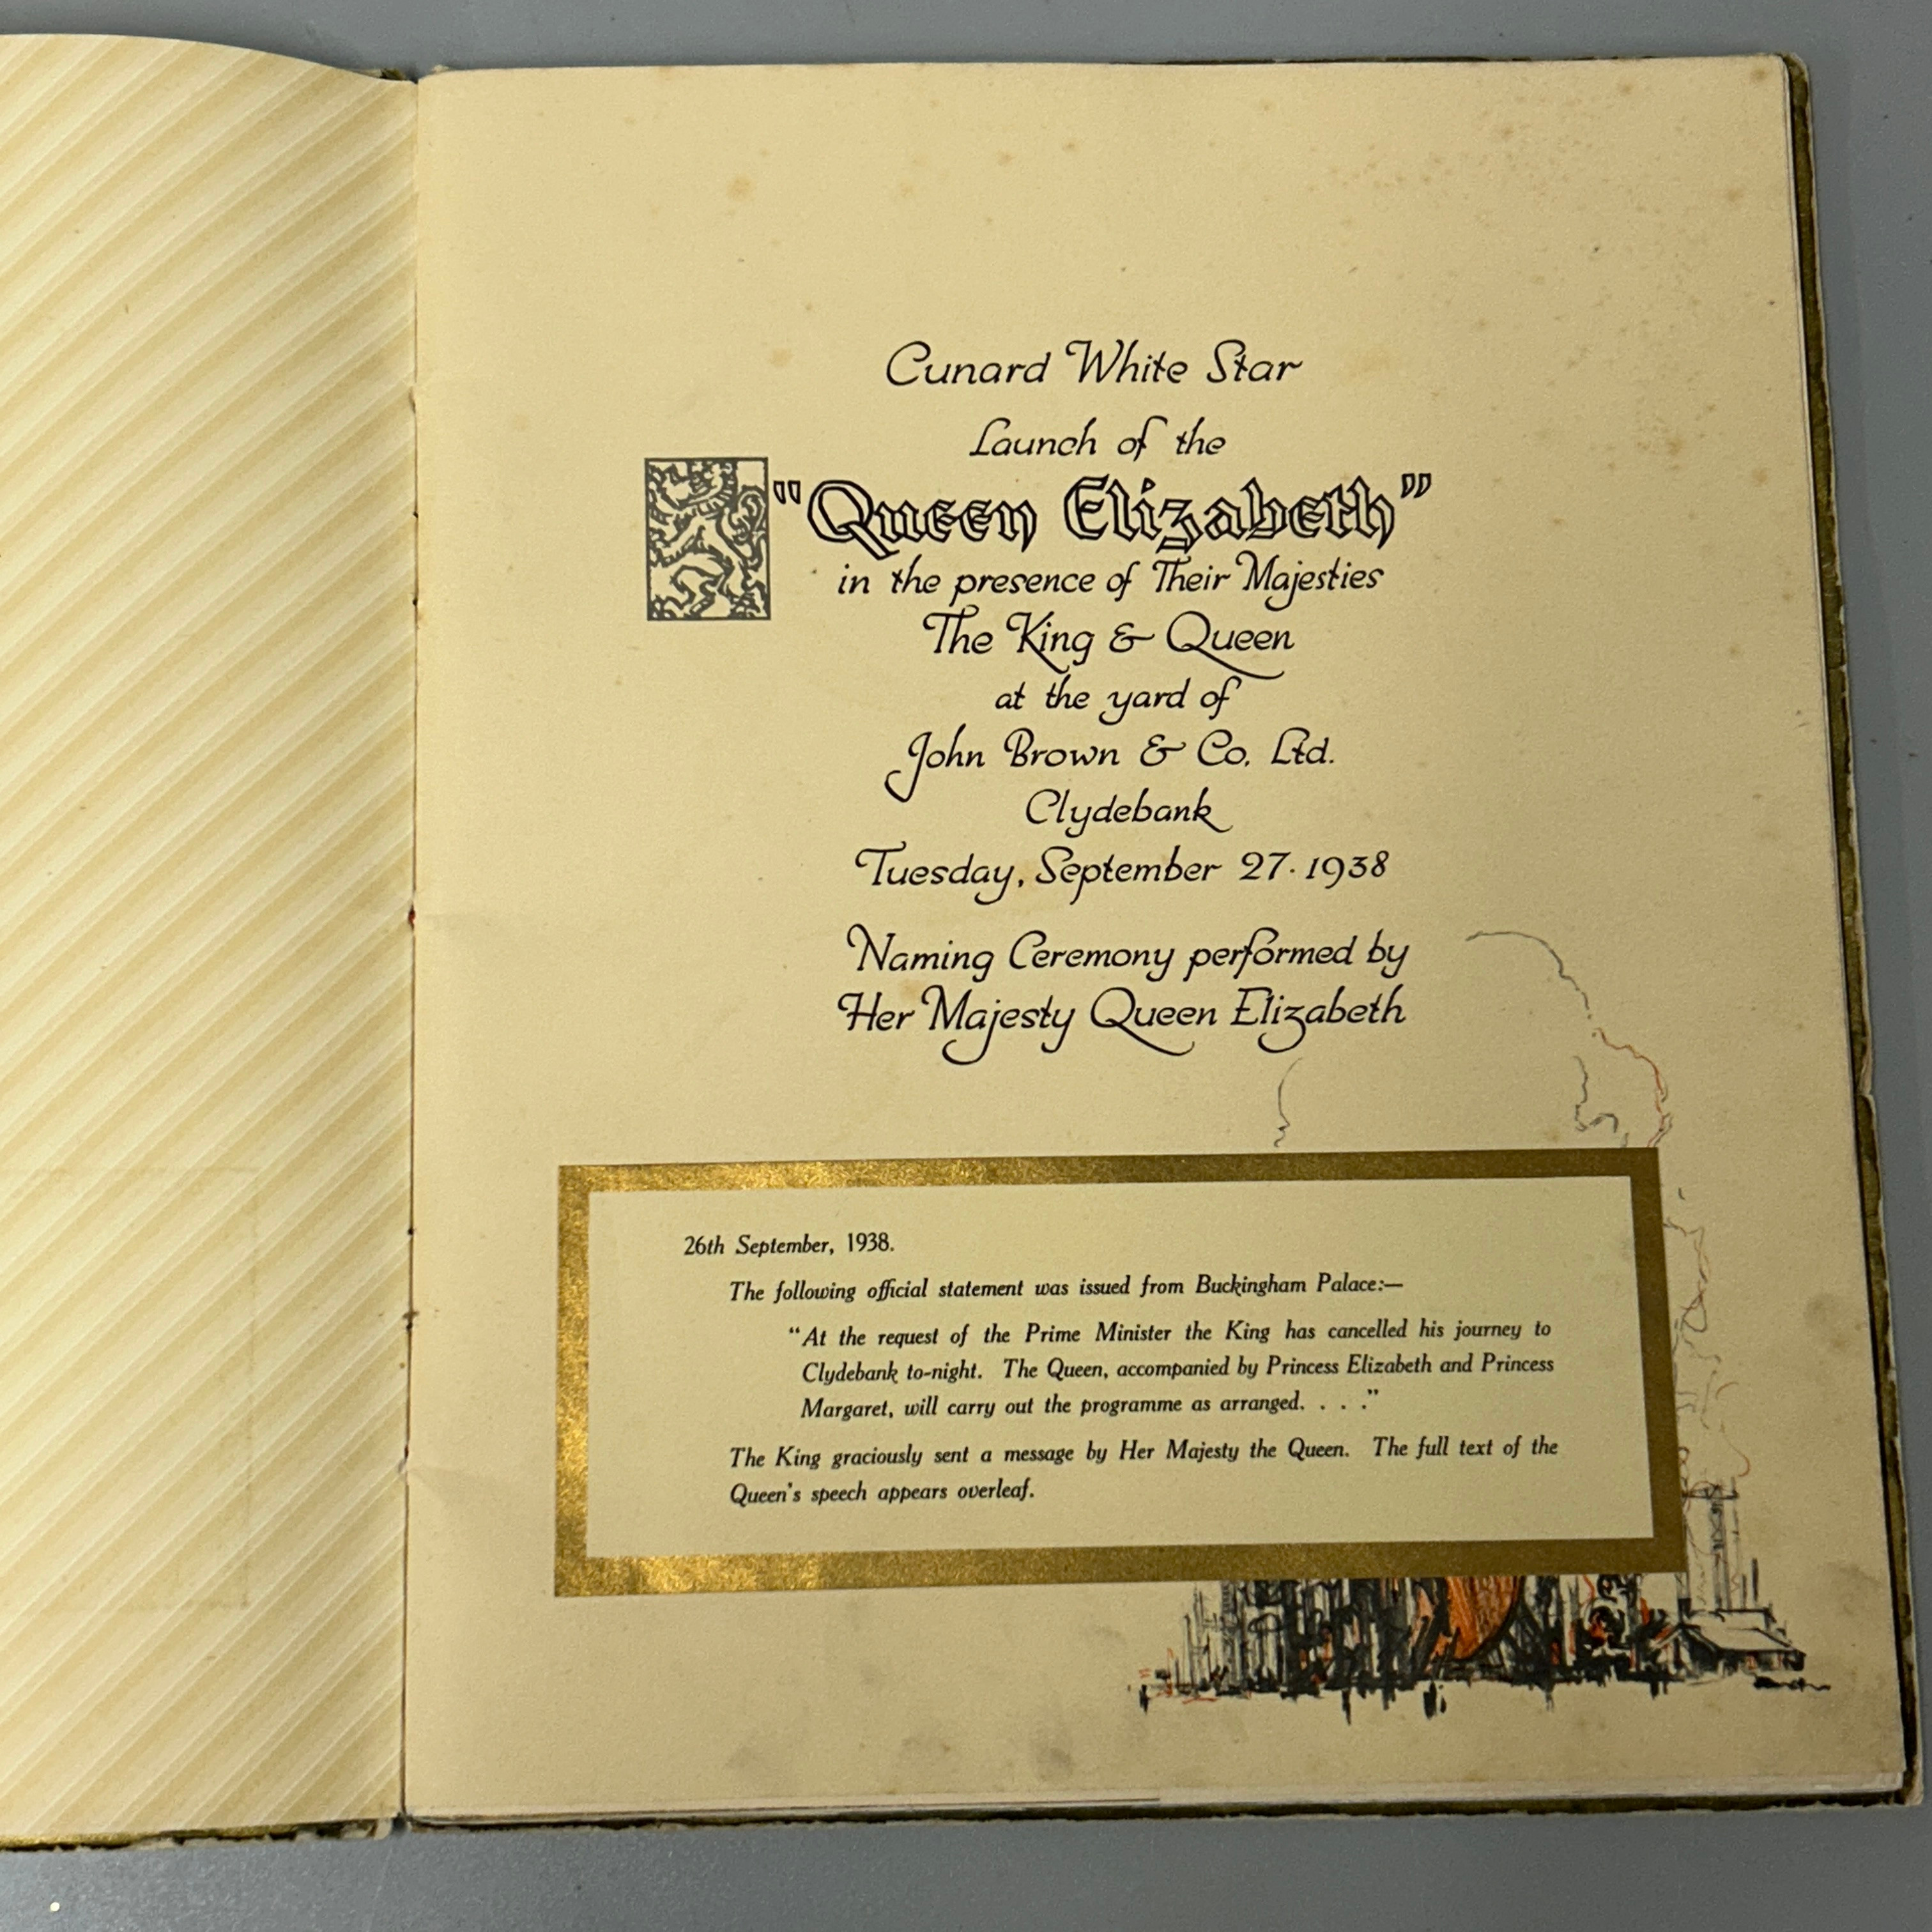 Cunard White Star
Launch of the
"Queen Elizabeth"
in the presence of Their Majesties
The King & Queen
at the yard of
John Brown & Co. Ltd.
Clydebank
Tuesday, September 27·1938
Naming Ceremony performed by
Her Majesty Queen Elizabeth
26th September, 1938.
The following official statement was issued from Buckingham Palace:—
"At the request of the Prime Minister the King has cancelled his journey to
Clydebank to-night. The Queen, accompanied by Princess Elizabeth and Princess
Margaret, will carry out the programme as arranged. . . ."
The King graciously sent a message by Her Majesty the Queen. The full text of the
Queen's speech appears overleaf.